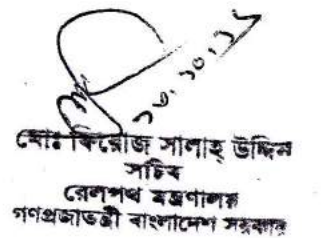 মোঃ ফিরোজ সালাহ্ উদ্দিন
সচিব
রেলপথ মন্ত্রণালয়
গণপ্রজাতন্ত্রী বাংলাদেশ সরকার